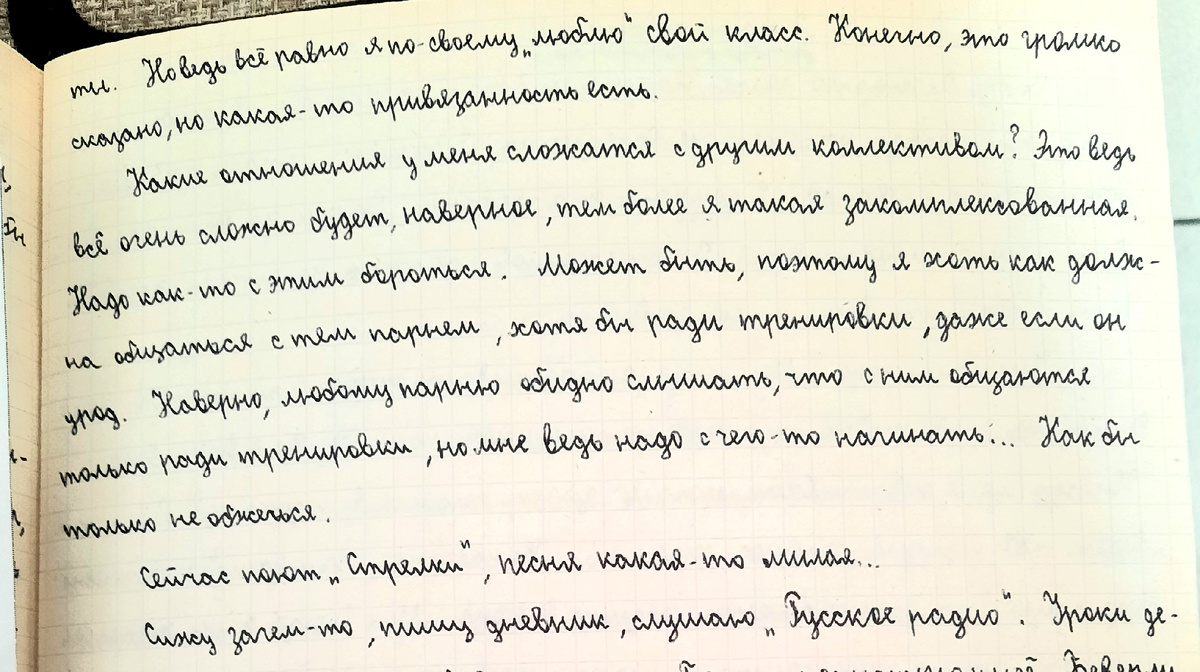 ты. Но ведь всё равно я по-своему „люблю" свой класс. Конечно, это громко
сказано, но какая-то привязанность есть.
Какие отношения у меня сложатся с другим коллективом? Это ведь
всё очень сложно будет, наверное, тем более я такая закомплексованная.
Надо как-то с этим бороться. Может быть, поэтому я хоть как долж-
на общаться с тем парнем, хотя бы ради тренировки, даже если он
урод. Наверно, любому парню обидно слышать, что с ним общаются
только ради тренировки, но мне ведь надо с чего-то начинать... Как бы
только не обжечься.
Сейчас поют „Стрелки", песня какая-то милая...
Сижу зачем-то, пишу дневник, слушаю „Русское радио". Уроки де-